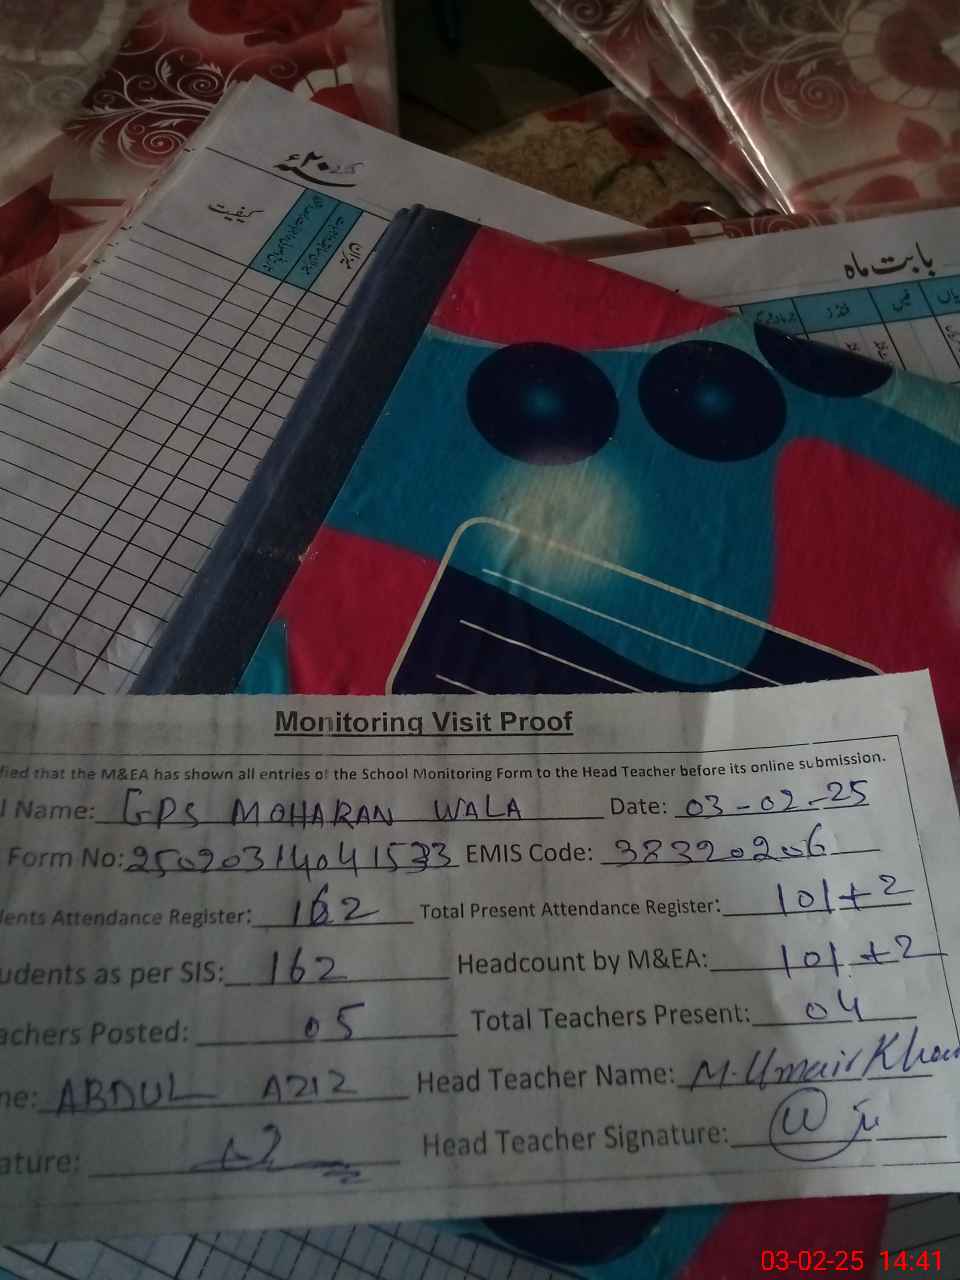 سنہ ۲۰ء 25
کیفیت
میزان
بابت ماہ
فنڈز
فیس
Monitoring Visit Proof
fied that the M&EA has shown all entries of the School Monitoring Form to the Head Teacher before its online submission.
l Name: GPS MOHARAN WALA Date: 03-02-25
Form No: 25020314041533 EMIS Code: 38320206
ents Attendance Register: 162 Total Present Attendance Register: 101+2
udents as per SIS: 162 Headcount by M&EA: 101+2
achers Posted: 05 Total Teachers Present: 04
ne: ABDUL AZIZ Head Teacher Name: M. Umair Khan
ature: Head Teacher Signature:
03-02-25 14:41